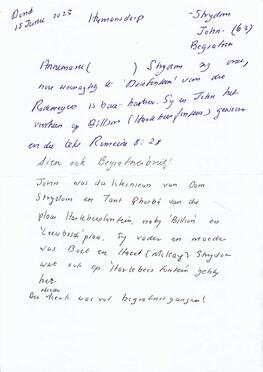 Dond
15 Junie 2023
Humansdorp
-Strydom
John- (63)
Begrafnis
Annemarie ( ) Strydom sy vrou,
nou woonagtig te 'Driefontein' van die
Rademeyer's is haar broer. Sy en John het
voorheen op Billson (Hartebeesfontein) gewoon
en die teks Romeine 8:28
Sien ook Begrafnisbrief!
John was die kleinseun van Oom
Strydom en Tant Phorbé van die
plaas Hartebeesfontein, naby 'Billion' en
'Leeubosch' plaas. Sy vader en moeder
was Boet en Hazel (McKay) Strydom
wat ook op 'Hartebees fontein' geboly
het.
Die kerk was vol begrafnisgangers!